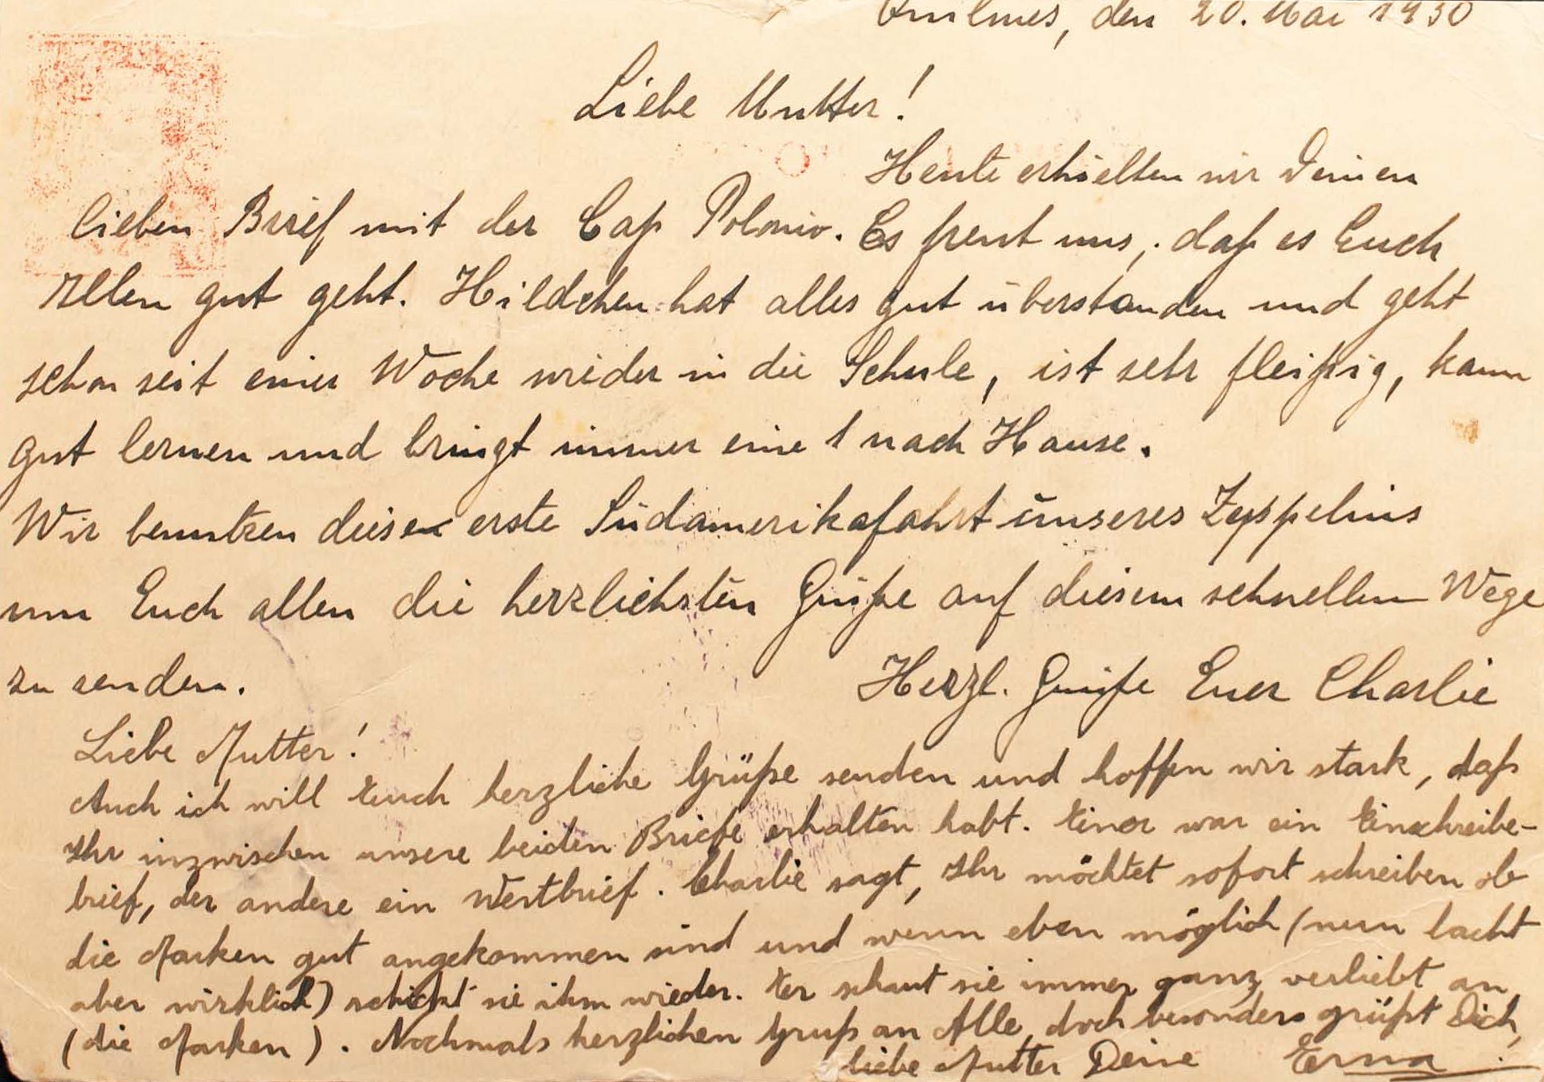 Quilmes, den 20. Mai 1930
Liebe Mutter!
Heute erhielten wir Deinen
lieben Brief mit der Cap Polonio. Es freut uns, daß es Euch
Allen gut geht. Hildchen hat alles gut überstanden und geht
schon seit einer Woche wieder in die Schule, ist sehr fleißig, kann
gut lernen und bringt immer eine 1 nach Hause.
Wir benutzen diese erste Südamerikafahrt unseres Zeppelins
um Euch allen die herzlichsten Grüße auf diesem schnellen Wege
zu senden.
Herzl. Grüße Euer Charlie
Liebe Mutter!
Auch ich will Euch herzliche Grüße senden und hoffen wir stark, daß
Ihr inzwischen unsere beiden Briefe erhalten habt. Einer war ein Einschreibe-
brief, der andere ein Wertbrief. Charlie sagt, Ihr möchtet sofort schreiben ob
die Marken gut angekommen sind und wenn eben möglich (nun lacht
aber wirklich) schickt sie ihm wieder. Er schaut sie immer ganz verliebt an
(die Marken). Nochmals herzlichen Gruß an Alle, doch besonders grüßt Dich,
liebe Mutter Deine Erna.